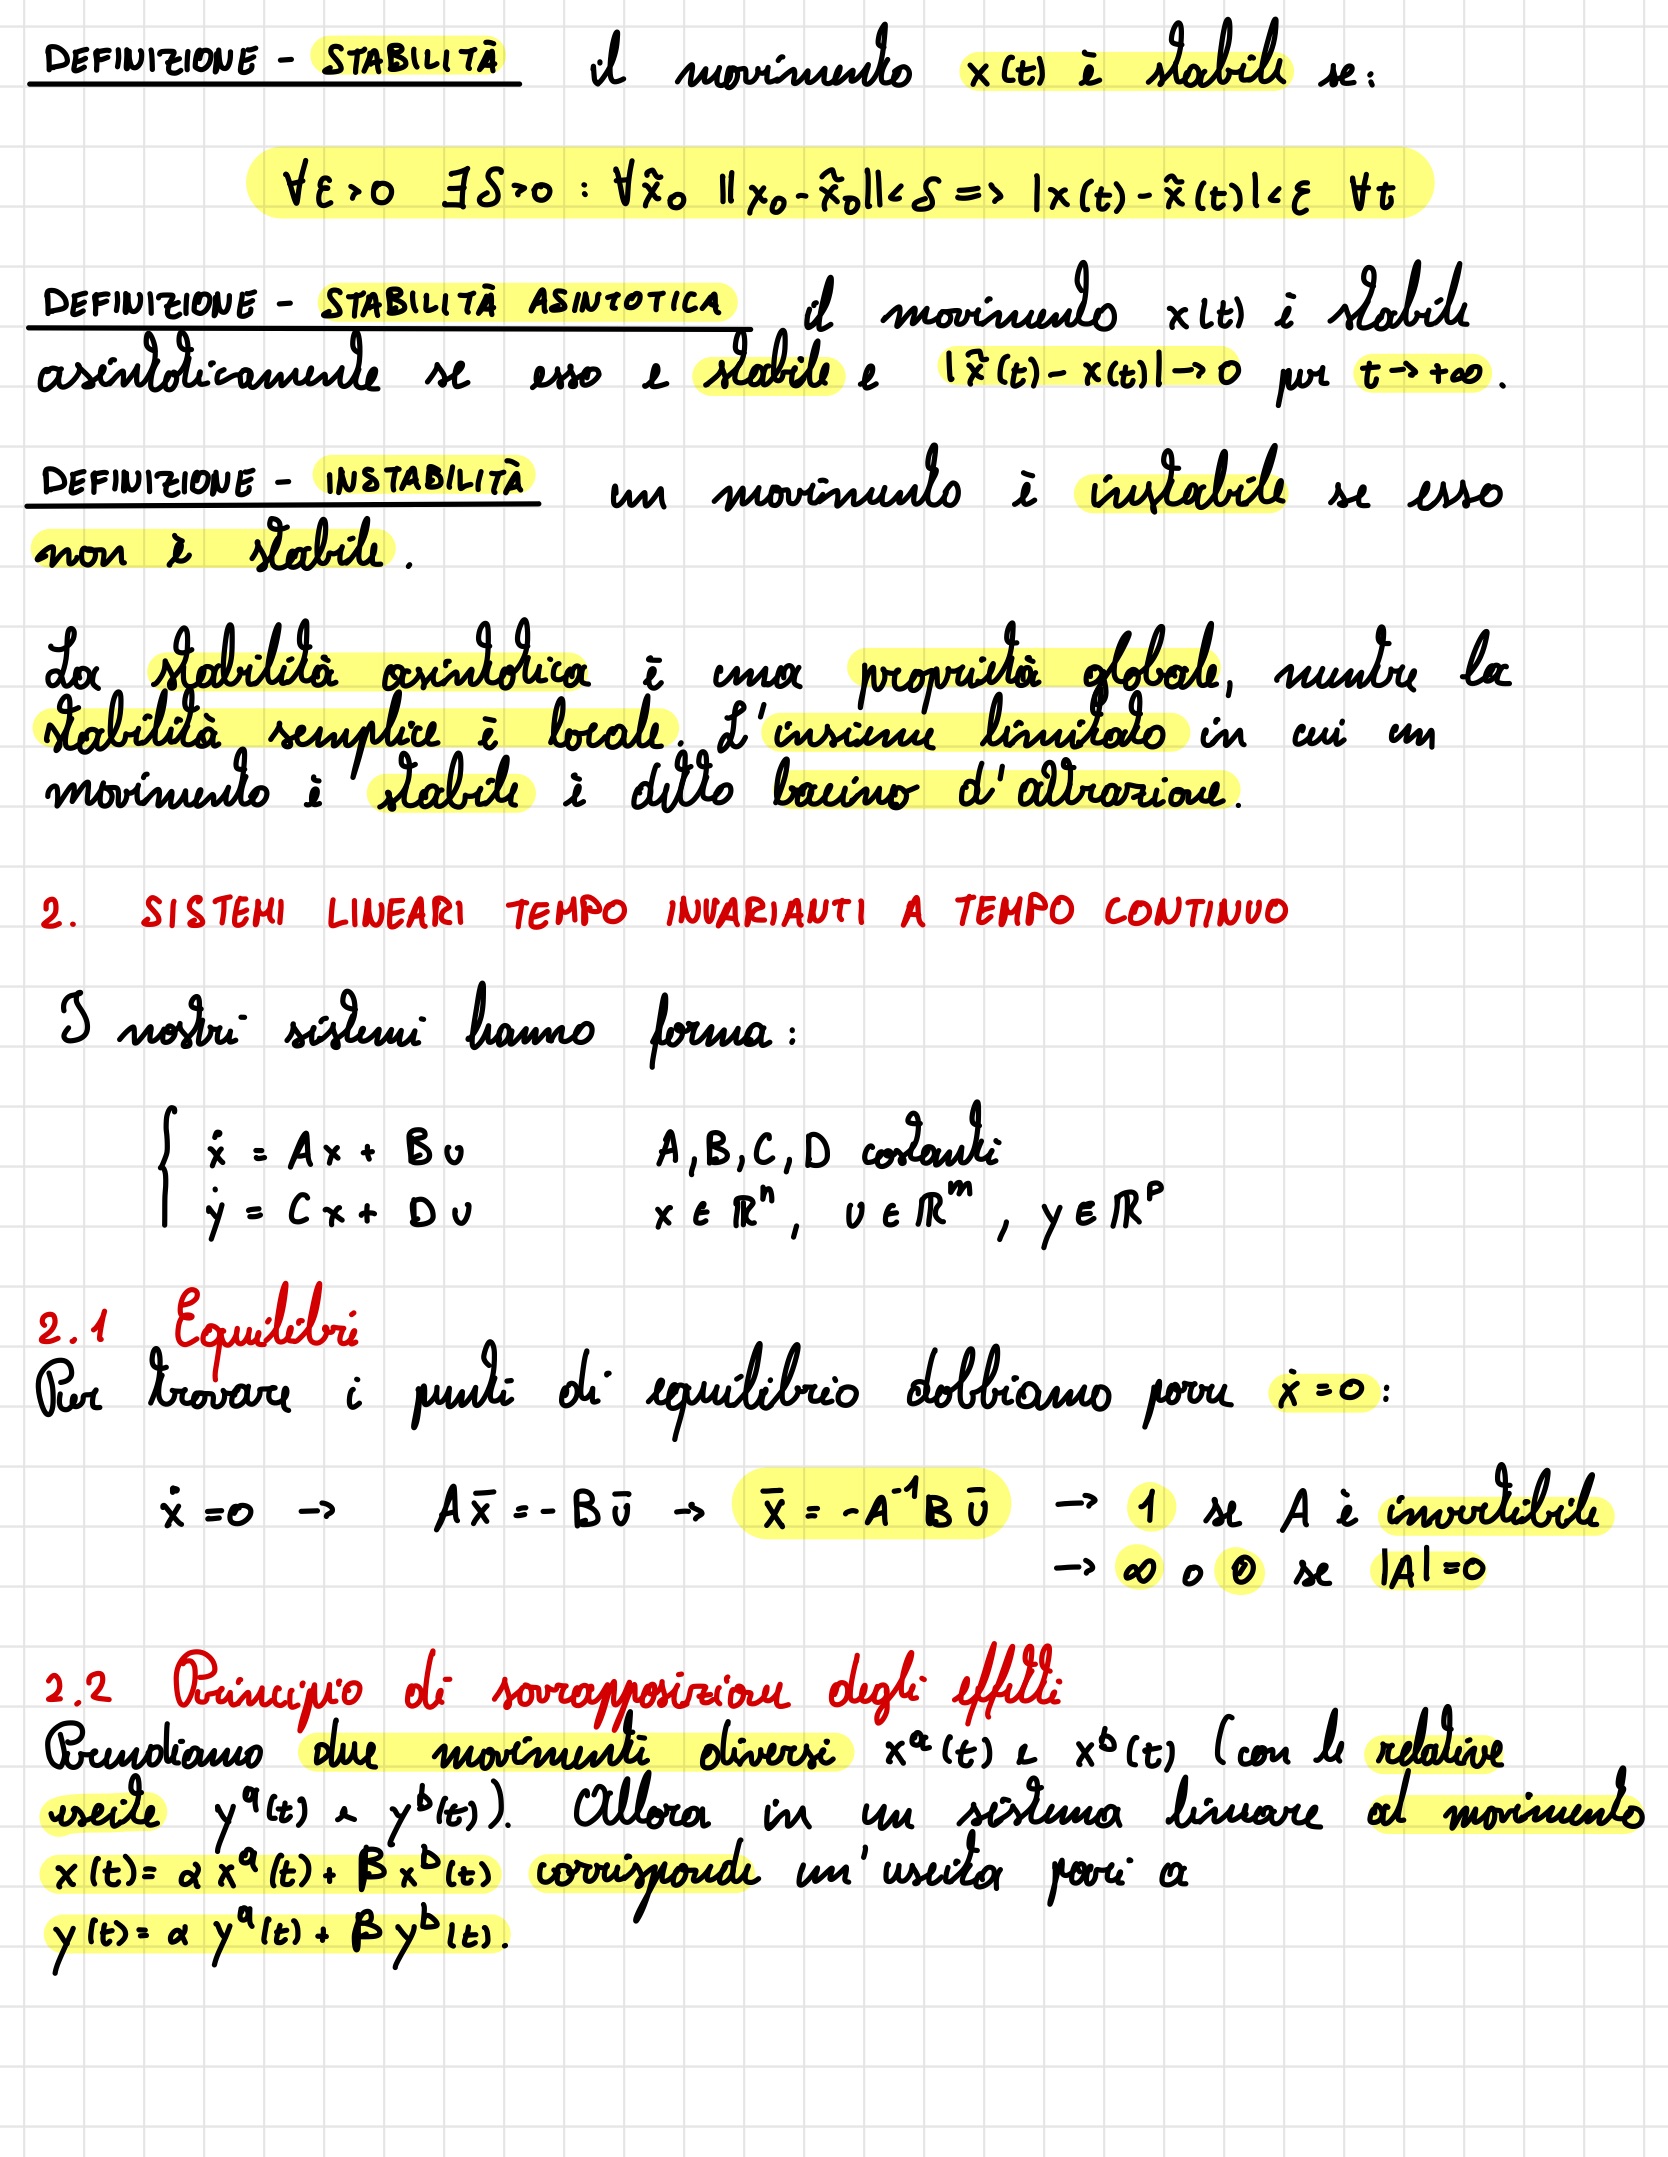 DEFINIZIONE - STABILITÀ il movimento x(t) è stabile se:
∀ε>0 ∃δ>0 : ∀x̃₀ ||x₀-x̃₀||<δ => |x(t)-x̃(t)|<ε ∀t
DEFINIZIONE - STABILITÀ ASINTOTICA il movimento x(t) è stabile
asintoticamente se esso e stabile e |x̃(t)-x(t)|→0 per t→+∞.
DEFINIZIONE - INSTABILITÀ un movimento è instabile se esso
non è stabile.
La stabilità asintotica è una proprietà globale, mentre la
stabilità semplice è locale. L'insieme limitato in cui un
movimento è stabile è detto bacino d'attrazione.
2. SISTEMI LINEARI TEMPO INVARIANTI A TEMPO CONTINUO
I nostri sistemi hanno forma:
ẋ = Ax + Bu A,B,C,D costanti
ẏ = Cx + Du x∈ℝⁿ, u∈ℝᵐ, y∈ℝᵖ
2.1 Equilibri
Per trovare i punti di equilibrio dobbiamo porre ẋ=0:
ẋ=0 → Ax̄=-Bū → x̄=-A⁻¹Bū → 1 se A è invertibile
→ ∞ o 0 se |A|=0
2.2 Principio di sovrapposizione degli effetti
Prendiamo due movimenti diversi xᵃ(t) e xᵇ(t) (con le relative
uscite yᵃ(t) e yᵇ(t)). Allora in un sistema lineare al movimento
x(t)=α xᵃ(t)+β xᵇ(t) corrisponde un'uscita pari a
y(t)=α yᵃ(t)+β yᵇ(t).